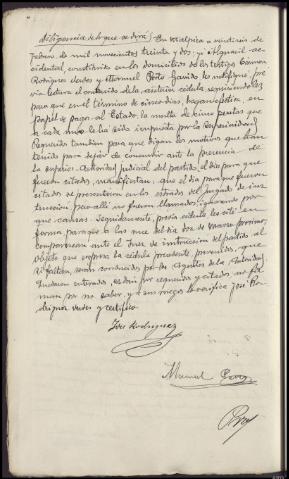 diligencia de lo que se dirá) En Valpica a veintiseis de
Febrero de mil novecientos treinta y dos; yo Alguacil ac-
cidental, constituido en los domicilios de los testigos Carmen
Rodriguez Verdes y Manuel Pato Gavido, les notifiqué, por
via lectura el contenido de la anterior cedula requiriendoles
para que en el término de cinco dias, hagan efectivo, en
papel de pagos al Estado, la multa de cinco pesetas que
a cada uno le ha sido impuesta por la Superioridad.
Requeridos tambien para que digan los motivos que han
tenido para dejar de concurrir ante la presencia de
la superior Autoridad judicial del partido el dia para que
fueron citados, manifiestan: que el dia para que fueron
citados se presentaron en los estrados del Juzgado de ins-
trucción pero alli no fueron llamados, ignorando por
que causas. Seguidamente, por la cédula les cité en
forma para que a las once del dia dos de marzo proximo,
comparezcan ante el Juez de instrucción del partido al
objeto que expresa la cédula precedente, previniendoles, que
si faltan, serán conducidos por los Agentes de la Autoridad.
Quedaron enterados, se dán por requeridos y citados no fir-
man por no saber, y a sus ruegos lo verifica José Ro-
driguez Verdes y certifico
José Rodriguez
Manuel